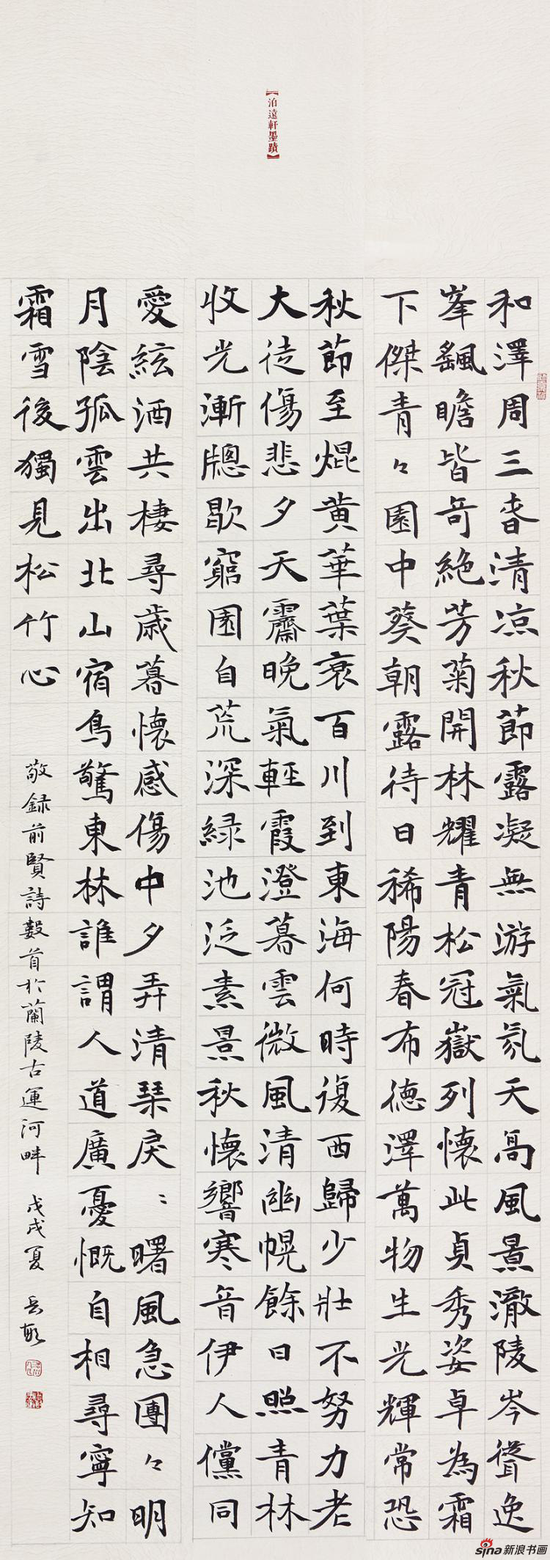 【泊遠軒墨蹟】
和澤周三春清涼秋節露凝無游氣氛天高風景澈陵岑聳逸
峯颻瞻皆奇絕芳菊開林耀青松冠嶽列懷此貞秀姿卓為霜
下傑青々園中葵朝露待日稀陽春布德澤萬物生光輝常恐
秋節至焜黃華葉衰百川到東海何時復西歸少壯不努力老
大徒傷悲夕天霽晚氣輕霞澄暮雲微風清幽幌餘日照青林
收光漸牕歇窮園自荒深綠池泛素景秋懷響寒音伊人儻同
愛絃酒共棲尋歲暮懷感傷中夕弄清琴戾々曙風急團々明
月陰孤雲出北山宿鳥驚東林誰謂人道廣憂慨自相尋寧知
霜雪後獨見松竹心
敬録前賢詩數首於蘭陵古運河畔 戊戌夏
sina新浪书画